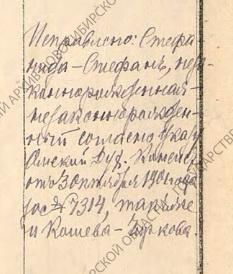 Исправлено: Стефа
нида - Стефанъ, неза
коннорожденная -
незаконнорожден-
ный согласно указу
Омской Дух. Консис.
отъ 30 октября 1901 года
за № 7314, также
и Кошева - Зыкова